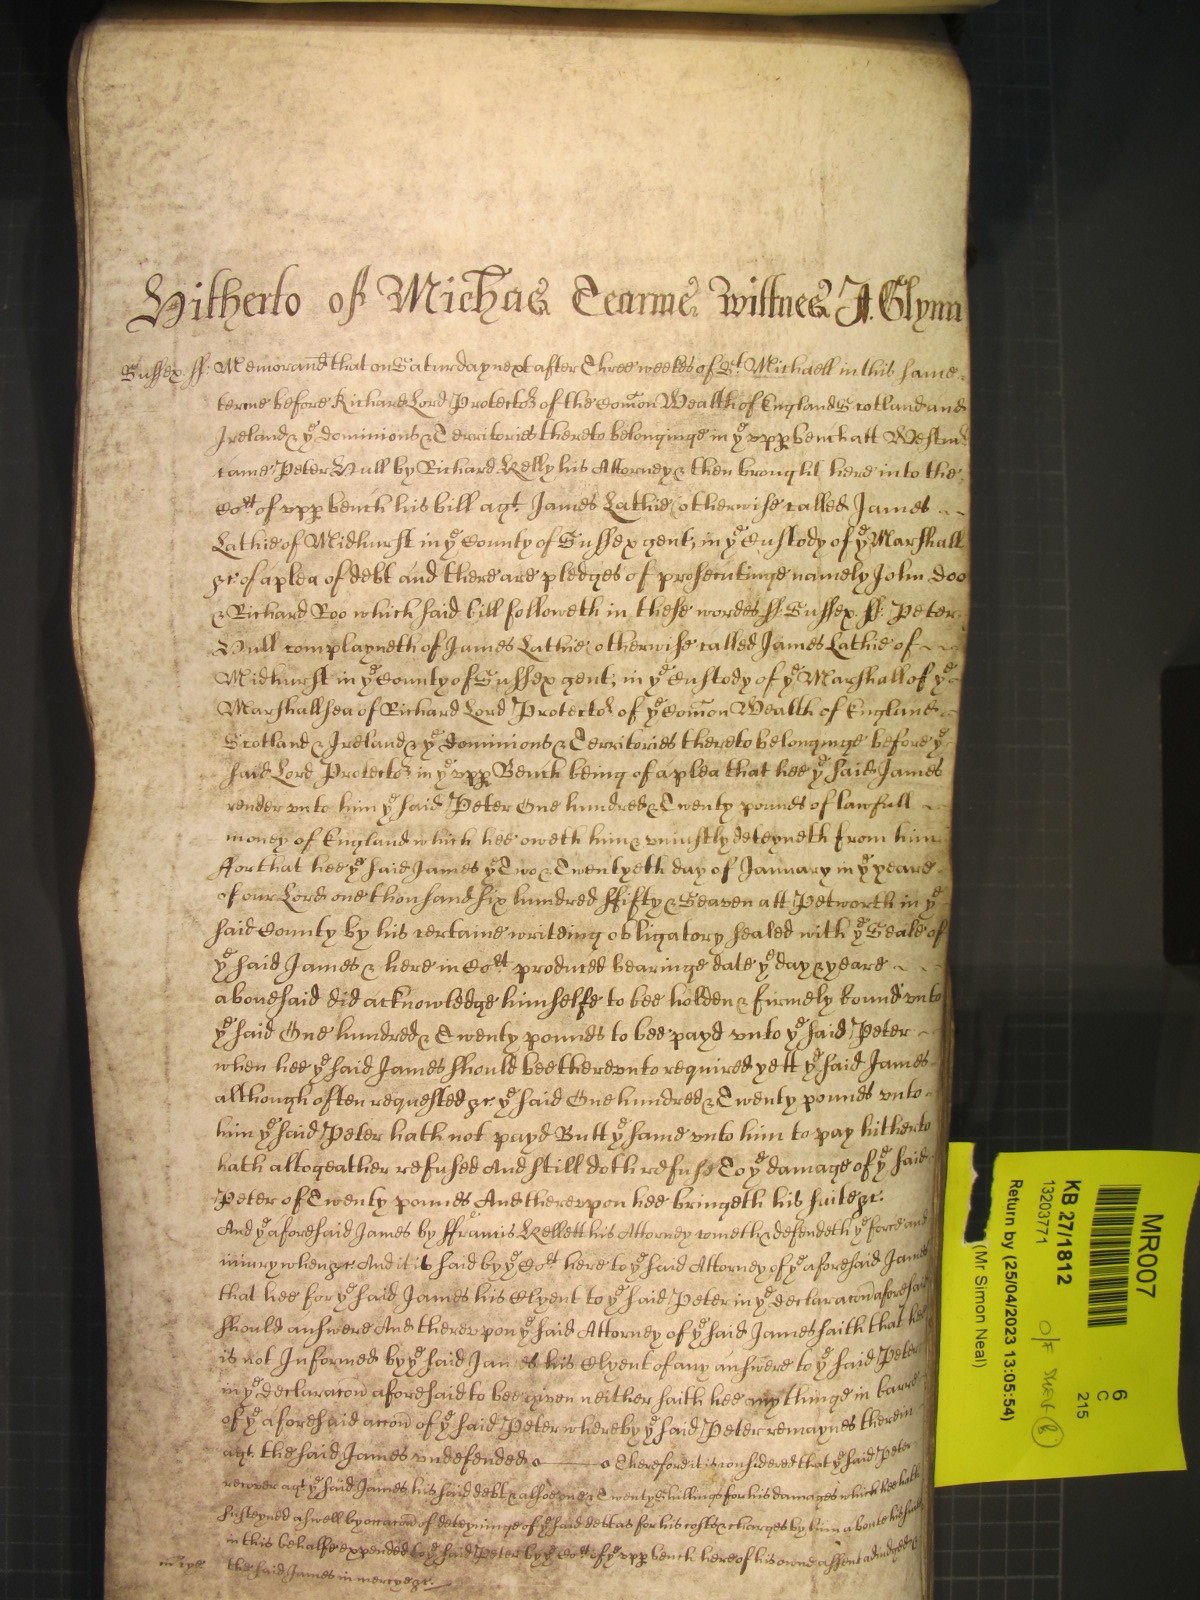 Hitherto of Michās Tearme Wittnes J. Glynn
Sussex ss: Memorand that on Saturday next after Three weekes of St Michaell in this same
terme before Richard Lord Protector of the Comōn Wealth of England Scotland and
Ireland & ye dominions & Territories thereto belonginge in ye vpp bench att Westmr
came Peter Hull by Richard Kelly his Attorney & then brought here into the
Cort of vpp bench his bill agt James Lathie otherwise called James
Lathie of Midhurst in ye County of Sussex gent, in ye Custody of ye Marshall
&c of a plea of debt and there are pledges of prosecutinge namely John Doo
& Richard Roo which said bill followeth in these wordes ss Sussex ss: Peter
Hull complayneth of James Lathie otherwise called James Lathie of
Midhurst in ye County of Sussex gent, in ye Custody of ye Marshall of ye
Marshallsea of Richard Lord Protector of ye Comōn Wealth of England
Scotland & Ireland & ye dominions & Territories thereto belonginge before ye
said Lord Protector in ye vpp Bench being of a plea that hee ye said James
render vnto him ye said Peter One hundred & Twenty pounds of lawfull
money of England which hee oweth him & vniustly deteyneth from him
ffor that hee ye said James ye Two & Twentyeth day of January in ye yeare
of our Lord one thousand six hundred ffifty & Seaven att Petworth in ye
said County by his certaine writeing obligatory sealed with ye Seale of
ye said James & here in Cort produced bearinge date ye day & yeare
abouesaid did acknowledge himselfe to bee holden & firmely bound vnto
ye said One hundred & Twenty pounds to bee payd vnto ye said Peter
when hee ye said James should bee therevnto required yett ye said James
although often requested &c ye said One hundred & Twenty pounds vnto
him ye said Peter hath not payd Butt ye same vnto him to pay hitherto
hath altogeather refused And still doth refuse To ye damage of ye said
Peter of Twenty pounds And therevpon hee bringeth his suite &c.
And ye aforesaid James by ffrancis Kellett his Attorney cometh & defendeth ye force and
iniury when &c And it is said by ye Cort here to ye said Attorney of ye aforesaid James
that hee for ye said James his Clyent to ye said Peter in ye declaracōn aforesaid
should answere And therevpon ye said Attorney of ye said James saith that hee
is not Informed by ye said James his Clyent of any answere to ye said Peter
in ye declaracōn aforesaid to bee given neither saith hee any thinge in barre
of ye aforesaid accōn of ye said Peter whereby ye said Peter remaynes therein
agt the said James vndefended Therefore it is considered that ye said Peter
recover agt ye said James his said debt & alsoe one & Twenty Shillings for his damages which hee hath
susteyned aswell by occacōn of deteyninge of ye said debt as for his costs & charges by him aboute his suite
in this behalfe expended to ye said Peter by ye Cort of ye vpp bench here of his owne assent adiudged &
the said James in mercye &c.
MR007
6
C
215
KB 27/1812
13203771
O/F
Return by (25/04/2023 13:05:54)
(Mr Simon Neal)